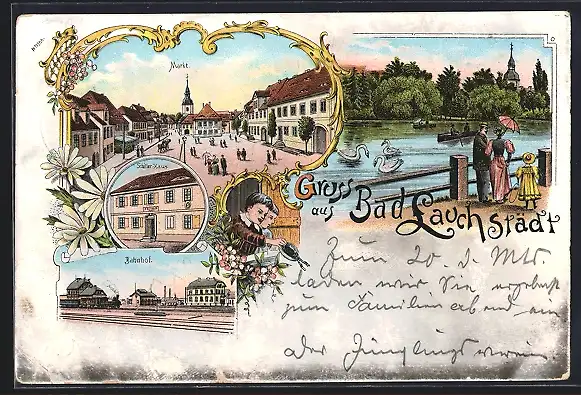 Markt.
Schiller-Haus
Bahnhof.
Gruss
aus Bad Lauchstädt
Zum 20. d. Mts.
laden wir Sie ergebenst
zum Familienabend ein
Der Jünglingsverein.